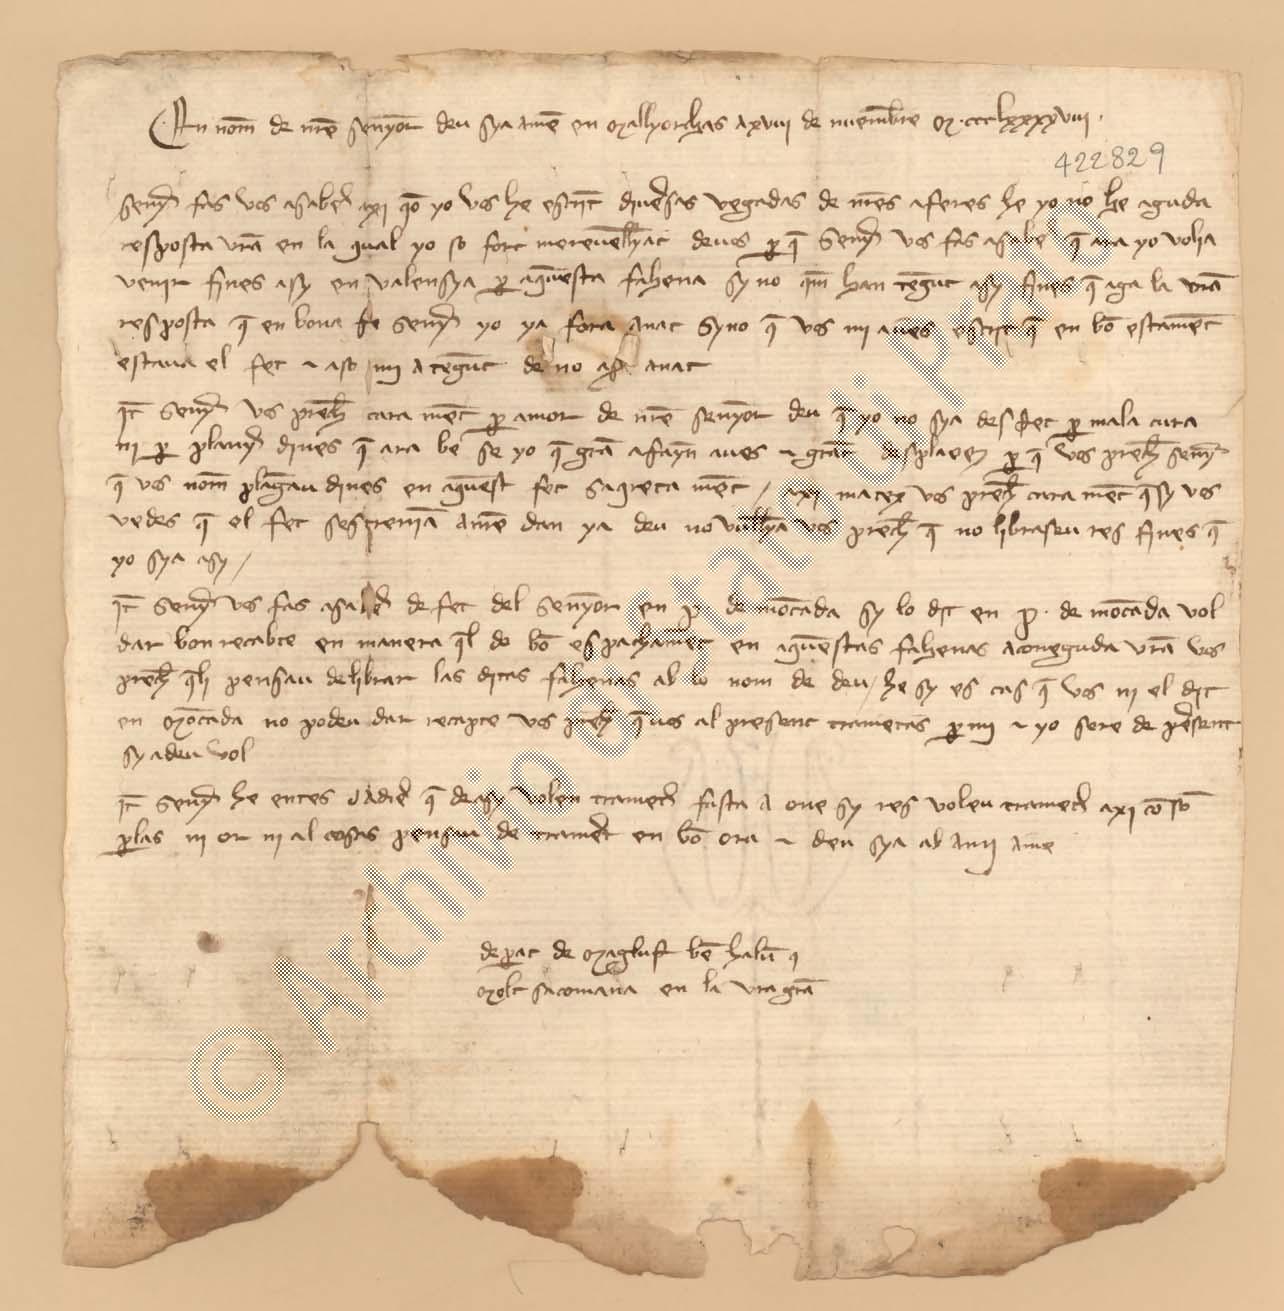 En nom de nre senyor deu sya ame en mallyorchas a xviii de nuembre m ccclxxxxviii.
422829
seny fas vos asaber axi qo yo vos he escrit diversas vegadas de mes aferes he yo no he aguda
resposta vra en la qual yo so fort merevellyat deves p q seny vos fas asabe q ara yo volia
venir fines asy en valensya p aquesta fahena sy no qm han tengut asy fines q aga la vra
resposta q en bona fe seny yo ya fora anat syno q vos mi aves escrit q en bo estament
estava el fet e aso mi a tengut de no aser anat
it seny vos prech cara ment p amor de nre senyor deu q yo no sya desfet p mala cura
ni p planyer dines q ara be se yo q gra afayn aves e gran desplaer p q vos prech seny
q vos nom plangau dines en aquest fet sagreta ment / axi matex vos prech cara ment q sy vos
vedes q el fet sestrenia a me dan ya deu no vullya vos prech q no libraseu res fines q
yo sya asy /
it seny vos fas asaber de fet del senyor en p de moncada sy lo dit en p. de moncada vol
dar bon recabte en manera qel do bo espachament en aquestas fahenas a coneguda vra vos
prech qeli pensau delibrar las ditas fahenas ab lo nom de deu / he sy es cas q vos ni el dit
en moncada no podeu dar recapte vos prech q vos al present trametas p mi e yo sere de present
sy a deu vol
it seny he entes a dir q de asy volen trametre fusta a one sy res voleu trametre axi co so
perlas ni or ni al cosas pensau de trametr en bo ora e deu sya ab avii ame
de part de magluf be halu q
molt sacomana en la vra gra
© Archivio di Stato di Prato